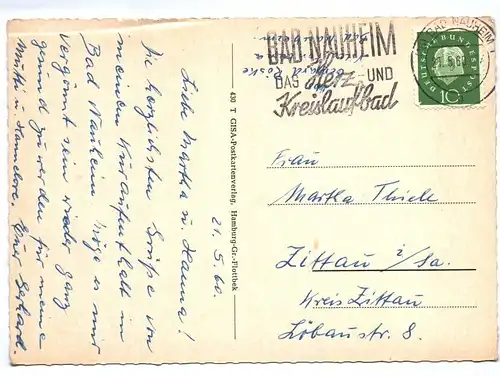 21.5.60.
Liebe Martha u. Hanna!
Die herzlichsten Grüße von
meinem Kuraufenthalt in
Bad Nauheim möge es mir
vergönnt sein wieder ganz
gesund zu werden für meine
Mutti u. Hannelore. Euer Gerhard.
430 T GISA-Postkartenverlag, Hamburg-Gr.-Flottbek
BAD NAUHEIM
DAS Herz- UND
Kreislaufbad
BAD NAUHEIM
DEUTSCHE BUNDESPOST
10
Frau
Martha Thiele
Zittau i/Sa.
Kreis Zittau
Löbaustr. 8.